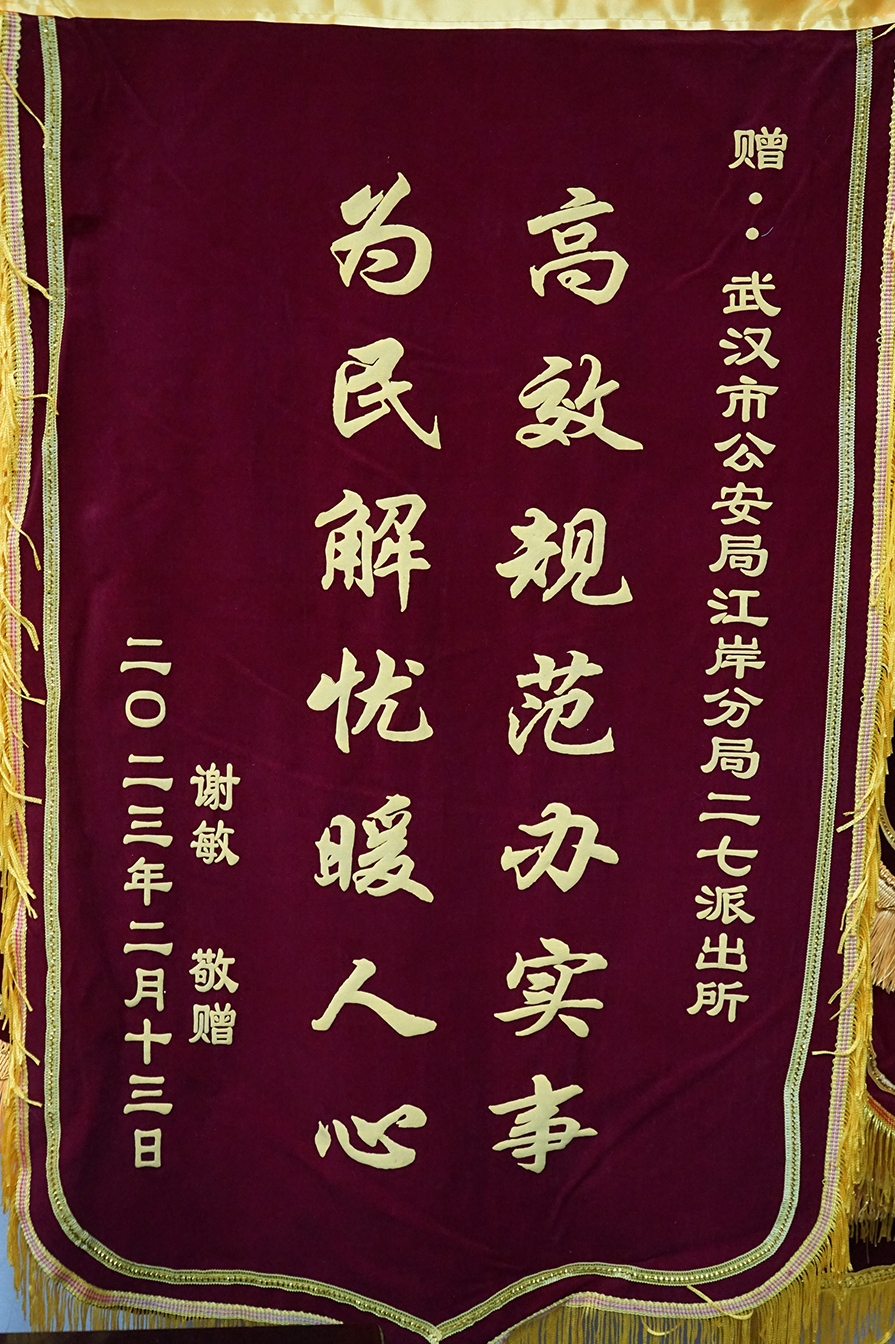 赠：武汉市公安局江岸分局二七派出所
高效规范办实事
为民解忧暖人心
谢敏 敬赠
二〇二三年二月十三日